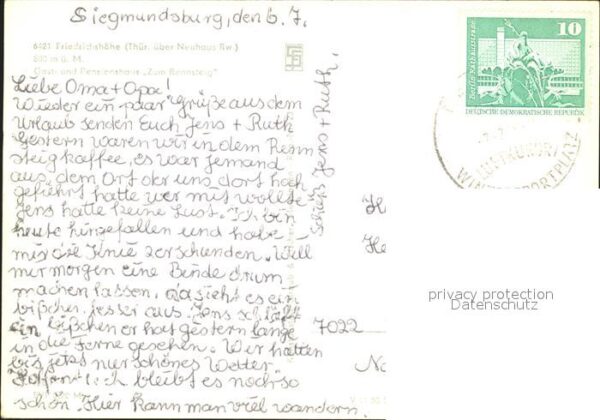 Siegmundsburg, den 6.7.
6421 Friedrichshöhe (Thür. über Neuhaus Rw.)
800 m ü. M.
Gast- und Pensionshaus „Zum Rennsteig"
Liebe Oma + Opa!
Wieder ein paar Grüße aus dem
Urlaub senden Euch Jens + Ruth
Gestern waren wir in dem Renn
steigkaffee, es war jemand
aus dem Ort der uns dort hoch
geführt hatte wer mit wollte
Jens hatte keine Lust. Ich bin
heute hingefallen und habe
mir die Knie zerschunden. Will
mir morgen eine Binde drum
machen lassen, da sieht es ein
bißchen besser aus. Jens schläft
ein bißchen er hat gestern lange
in die Ferne gesehen. Wir hatten
bis jetzt nur schönes Wetter.
Hoffentlich bleibt es noch so
schön. Hier kann man viel wandern.
Jens + Ruth.
10
Berlin, Rathausstraße
DEUTSCHE DEMOKRATISCHE REPUBLIK
LUFTKURORT
WINTERSPORTPLATZ
H
He
7022
No
privacy protection
Datenschutz